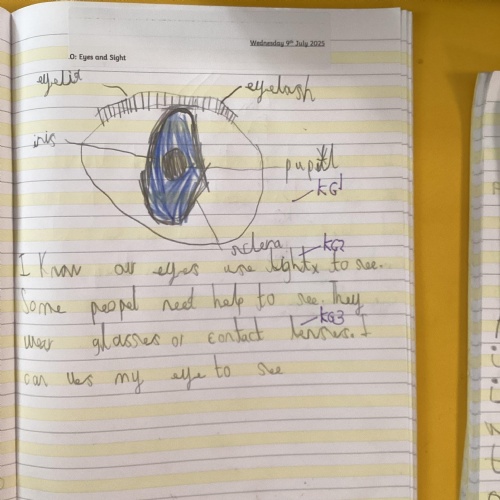 Wednesday 9th July 2025
O: Eyes and Sight
eyelid eyelash
iris
pupil
KG1
sclera KG2
I Know our eyes use light to see.
Some peopel need help to see. They
wear glasses or contact lenses. I
KG3
can ues my eye to see